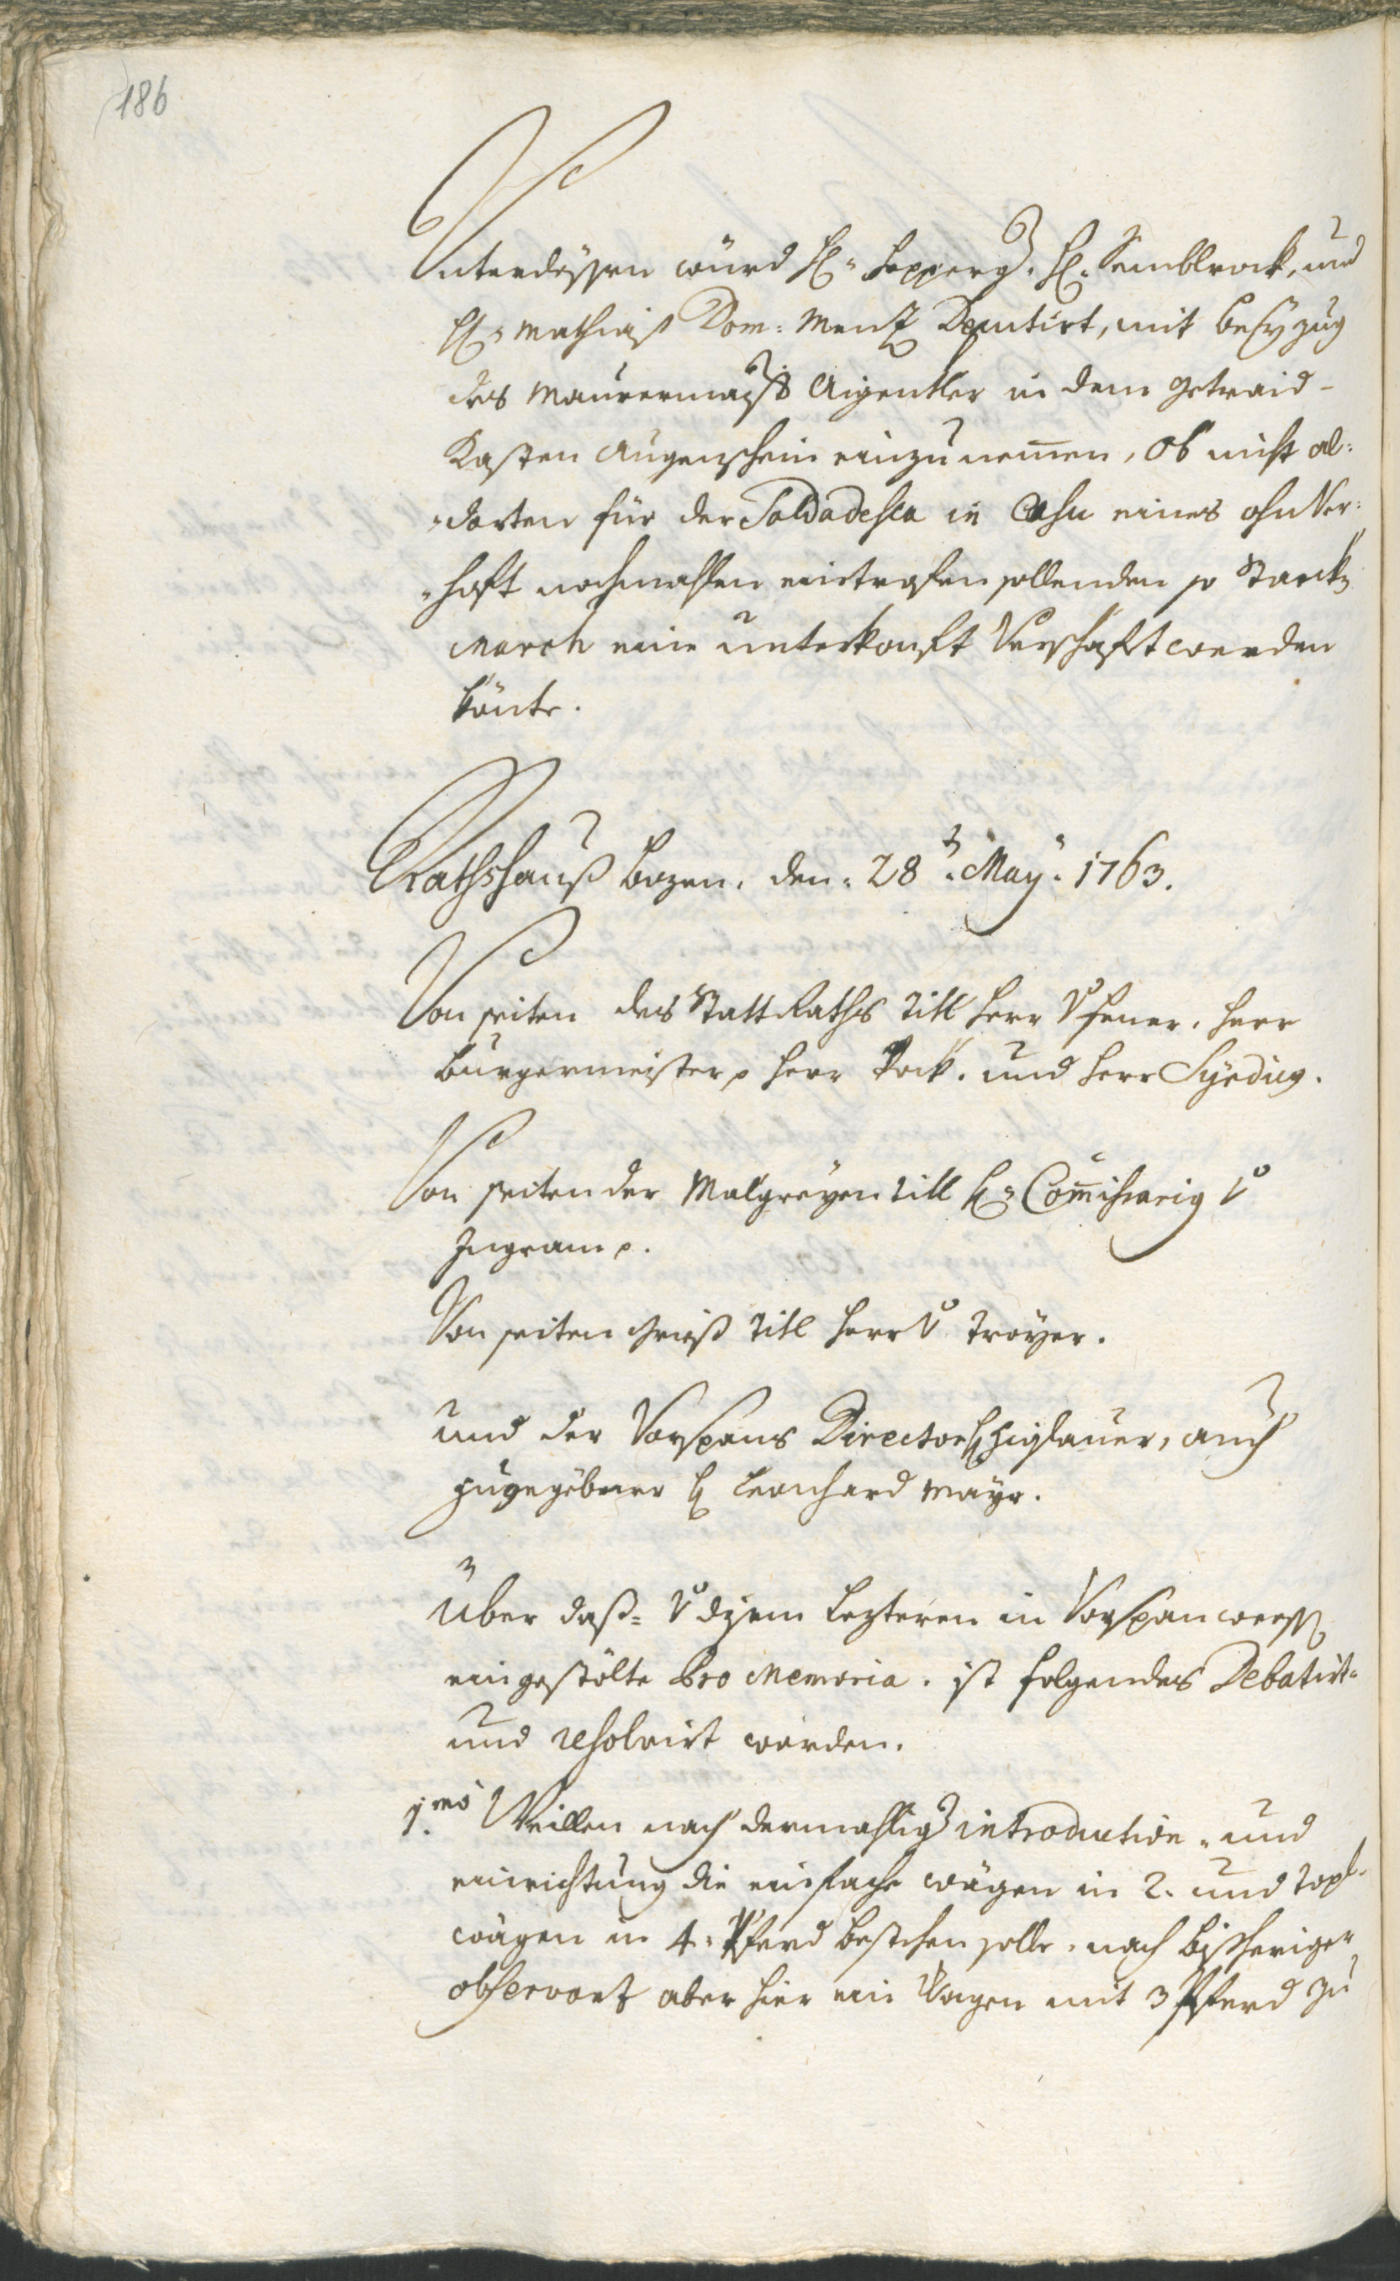 186
Unterdessen würd H: Hepperg, H: Semblrock, und
H: Mathias Dom: Menz Deputirt, mit beyzug
des Maurermaist: Aigentler in dem getraid-
Kasten Augenschein einzunemmen, ob nicht al:
dorten für der Soldadesca in Casu eines ohnver:
hoft nochmahlen eintrefen sollenden so starckh
March eine unterkonft verschaft werden
könte.
Rathshauß Bozen, den: 28.t May: 1763.
Von seiten des Statt Raths Titl Herr v: Herr
Burgermeister, Herr Pock, und Herr Syndicus.
Von seiten der Malgreyen Titl H: Commissarius v:
Ingram.
Von seiten Grieß Titl Herr v: Troyer.
und der Vorspans Director H: auch
zugegebner H: Leonhard Mayr.
Über daß v: disem lezteren in Vorspanweesen
eingestölte Pro Memoria, ist folgendes Debatirt-
und resolvirt worden.
1.mo Weillen nach dermahliger introduction- und
einrichtung die einfache Wägen in 2. und topl-
wägen in 4: Pferd bestehen solle, nach bishheriger
observanz aber hier ein Wagen mit 3 Pferd zu